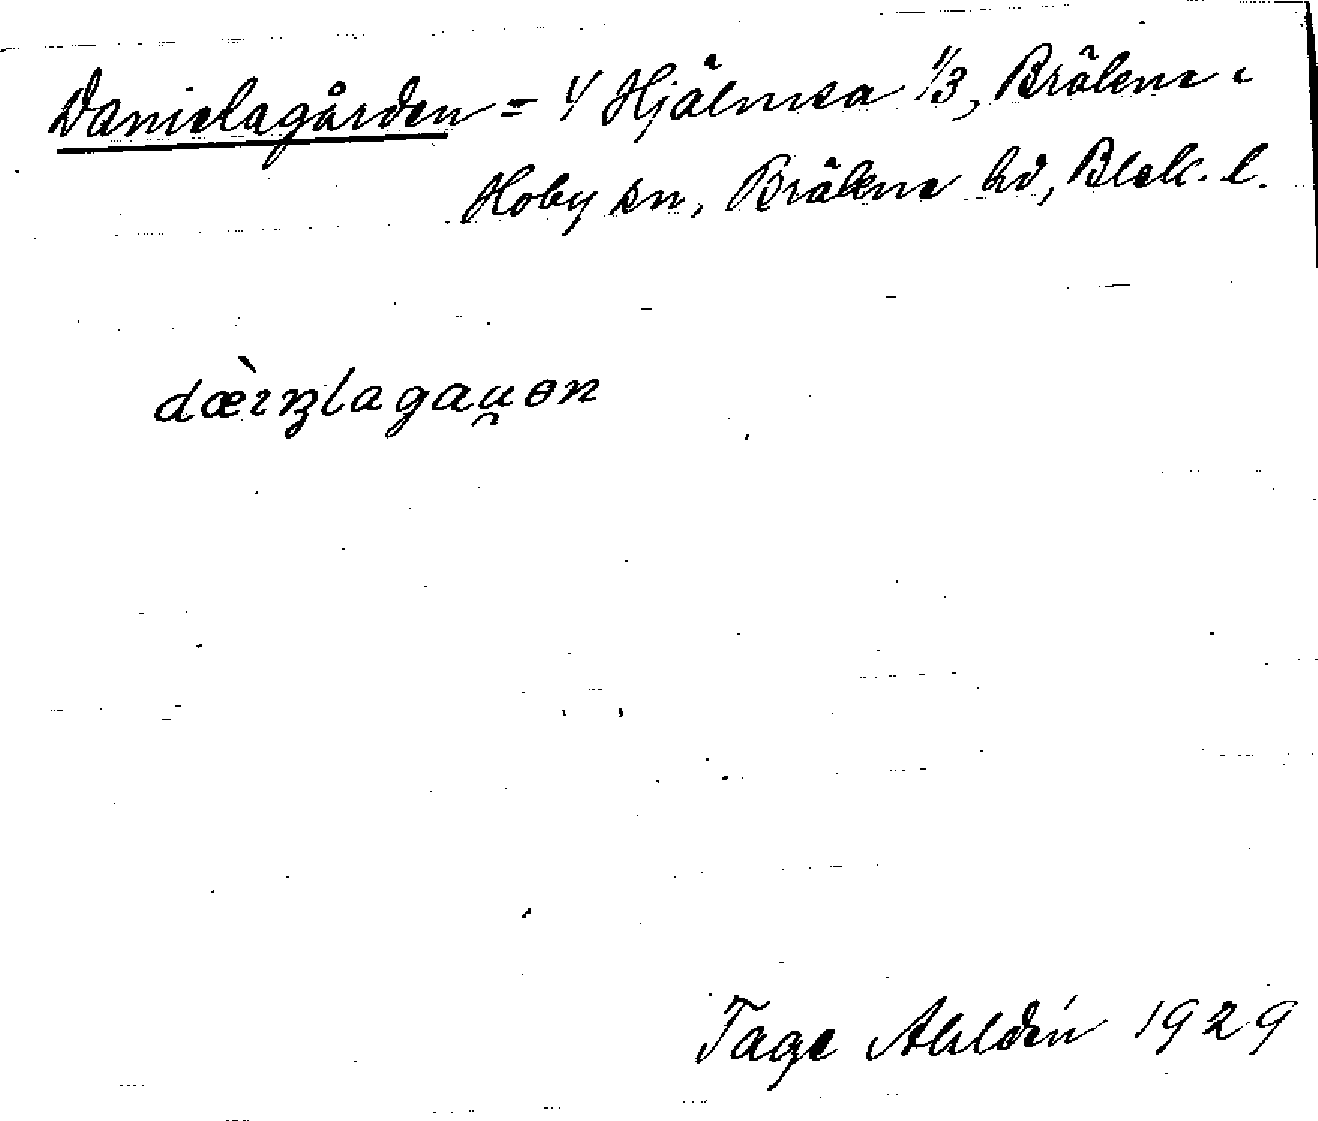 Danielagården = 4 Hjälmsa 1/3, Bräkne-
Hoby sn, Bräkne hd, Blek. l.
dæ̀ıꞥlagau̯ɵn
Tage Ahldén 1929